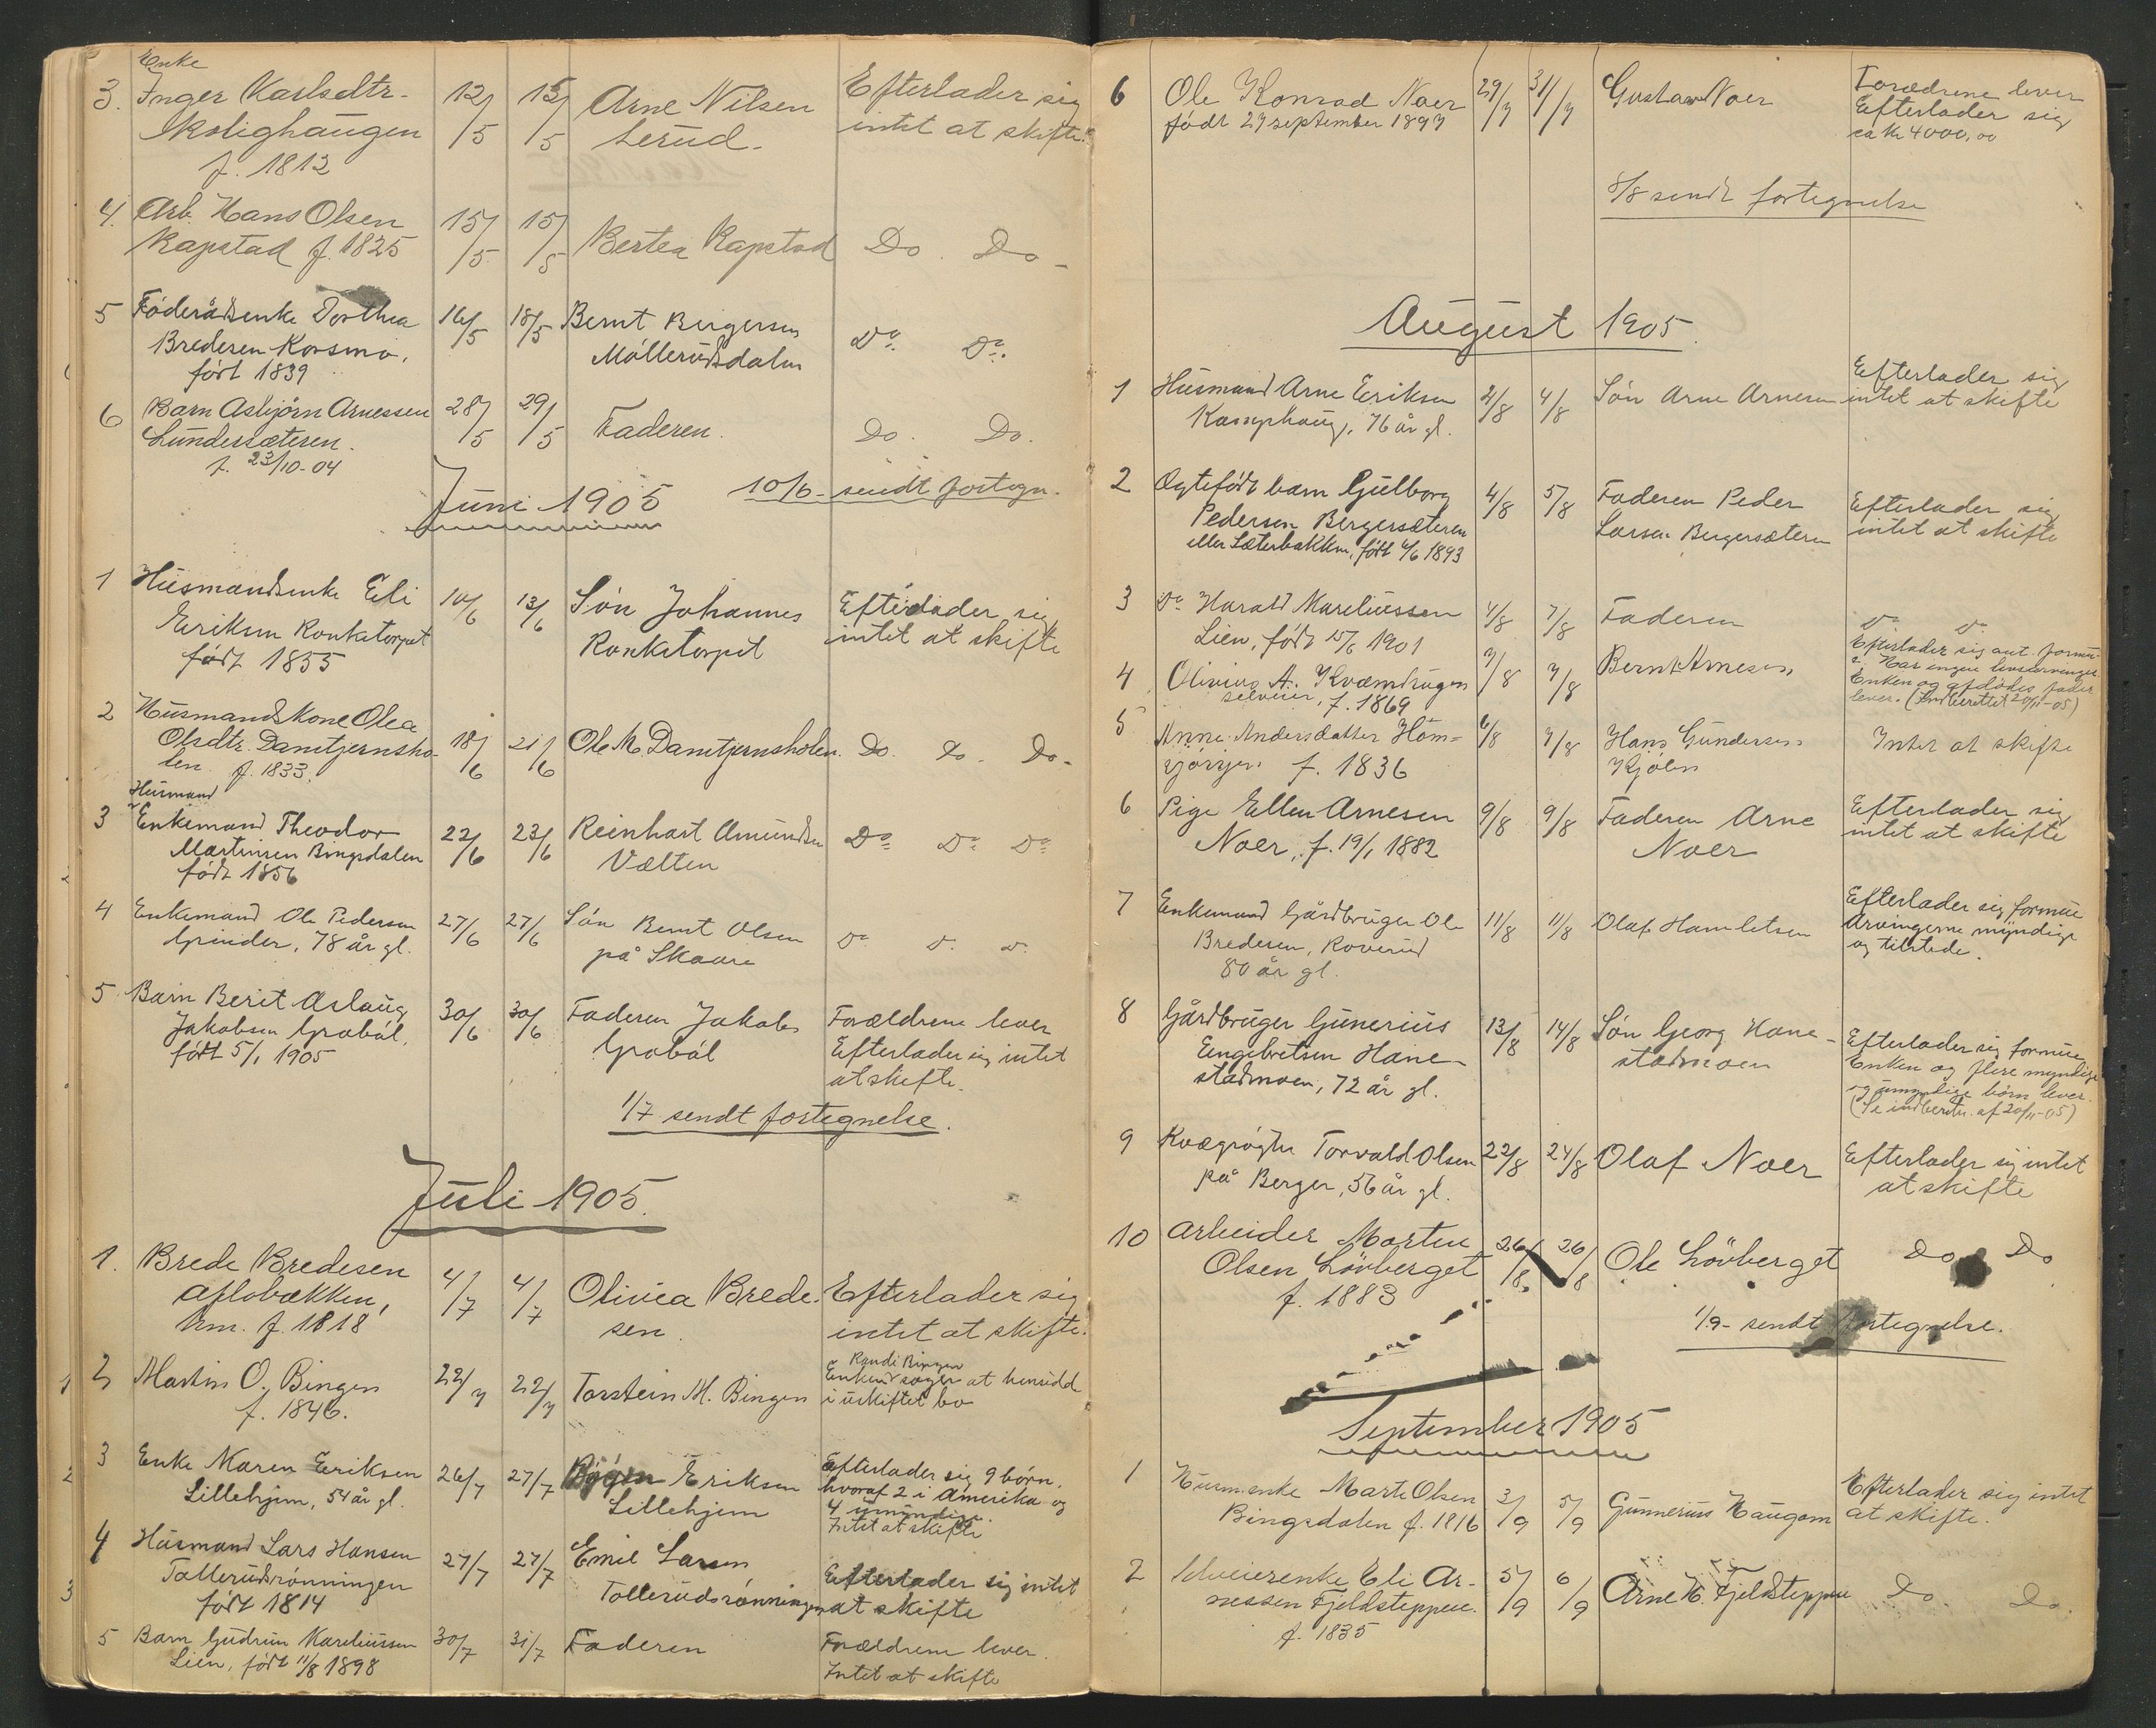 Enke
3. Inger Karlsdtr. 12/5 15/5 Arne Nilsen Efterlader sig
Skolighaugen Lerud. intet at skifte.
f. 1812
4. Arb. Hans Olsen 15/5 15/5 Bertea Rapstad Do. Do.
Rapstad f. 1825
5 Føderådsenke Dorthea 16/5 18/5 Bernt Bergersen Do. Do.
Bredesen Korsmo, Møllerudsdalen
født 1839
6 Barn Asbjørn Arnessen 28/5 29/5 Faderen. Do. Do.
Lundersæteren.
f. 23/10-04
10/6 - sendt fortegn.
Juni 1905
1 Husmandsenke Eli 10/6 13/6 Søn Johannes Efterlader sig
Eriksen Ronketorpet Ronketorpet intet at skifte
født 1855
2 Husmandskone Olea 18/6 21/6 Ole M. Damtjernsholen. Do. Do. Do.
Olsdtr. Damtjernsho-
len f. 1833.
Husmand
3 Enkemand Theodor 22/6 23/6 Reinhart Amundsen Do. Do. Do.
Martinsen Bingsdalen Vælten
født 1856
4 Enkemand Ole Pedersen 27/6 27/6 Søn Bernt Olsen Do. Do. Do.
Grinder, 78 år gl. på Skaare
5 Barn Berit Aslaug 30/6 30/6 Faderen Jakob Forældrene lever
Jakobsen Grabøl, Grabøl Efterlader sig intet
født 5/1 1905 at skifte.
1/7 sendt fortegnelse.
Juli 1905.
1. Brede Bredesen 4/7 4/7 Olivia Brede- Efterlader sig
Aflobækken, sen. intet at skifte.
hm. f. 1818
2 Martin O. Bingen 22/7 22/7 Torstein M. Bingen Randi Bingen
f. 1846. Enken søger at hensidde
i uskiftet bo
3 Enke Karen Eriksen 26/7 27/7 Eriksen Efterlader sig 9 børn,
Lillehjem, 54 år gl. Lillehjem hvoraf 2 i Amerika og
4 umyndige.
Intet at skifte
4 Husmand Lars Hansen 27/7 27/7 Emil Larsen Efterlader sig intet
Tollerudsrønningen Tollerudsrønningen at skifte
født 1814
5 Barn Gudrun Kareliussen 30/7 31/7 Faderen Forældrene lever.
Lien, født 11/8 1898 Intet at skifte
6 Ole Konrad Noer 29/7 31/7 Gustav Noer Forædrene lever
født 27 september 1897 Efterlader sig
ca kr 4000,00
8/8 sendt fortegnelse
August 1905.
1 Husmand Arne Eriksen 2/8 4/8 Søn Arne Arnesen Efterlader sig
Kamphaug, 76 år gl. intet at skifte
2 Ægtefødt barn Gulborg 4/8 5/8 Faderen Peder Efterlader sig
Pedersen Bergersæteren Larsen Bergersæteren intet at skifte
eller Sæterbakken, født 4/6 1893
3 Do Harald Mareliussen 4/8 7/8 Faderen Do. Do.
Lien, født 15/6 1901
4 Olivius A. Kvæmdrugen 7/8 7/8 Bernt Arnesen Efterlader sig ant. formu-
selveier, f. 1869 e. Har ingen livsarvinger.
Enken og afdødes fader
lever. (Indberettet 20/11-05)
5 Anne Andersdatter Høm- 6/8 7/8 Hans Gundersen Intet at skifte
f. 1836 Kjølen
6 Pige Ellen Arnesen 9/8 9/8 Faderen Arne Efterlader sig
Noer, f. 19/1 1882 Noer intet at skifte
7 Enkemand Gårdbruger Ole 11/8 11/8 Olaf Hamletsen Efterlader sig formue
Bredesen, Roverud Arvingerne myndige
80 år gl. og tilstede.
8 Gårdbruger Gunerius 13/8 14/8 Søn Georg Hane- Efterlader sig formue
Engebretsen Hane- stadmoen Enken og flere myndige
stadmoen, 72 år gl. og umyndige børn lever.
(Se indberetn. af 20/11-05)
9 Kvægrøgter Torvald Olsen 22/8 24/8 Olaf Noer Efterlader sig intet
på Berger, 56 år gl. at skifte
10 Arbeider Morten 26/8 26/8 Ole Løvberget Do Do
Olsen Løvberget
f. 1883
1/9 - sendt fortegnelse.
September 1905
1 Husm.enke Marte Olsen 3/9 5/9 Gunnerius Haugom Efterlader sig intet
Bingsdalen f. 1816 at skifte.
2 Selveierenke Eli Ar- 5/9 6/9 Arne H. Fjeldsteppen Do. Do.
nessen Fjeldsteppen.
f. 1835